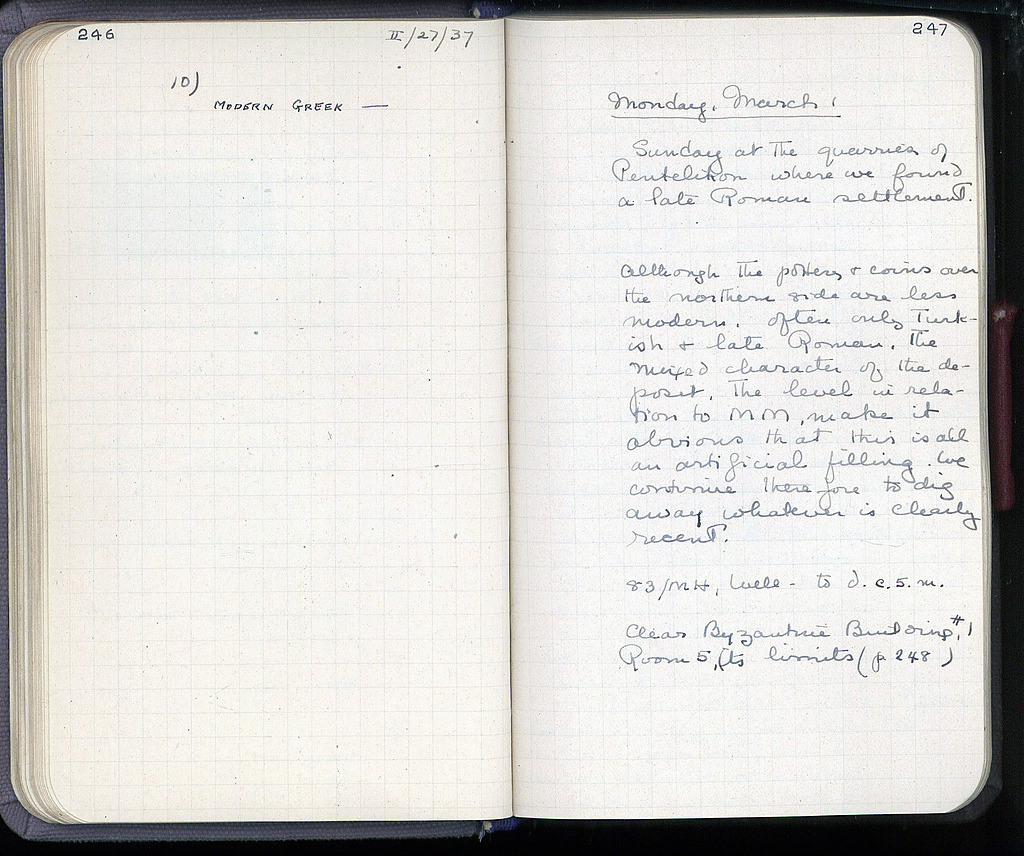 246
II/27/37
10)
MODERN GREEK —
247
Monday, March 1
Sunday at the quarries of
Pentelikon where we found
a late Roman settlement.
Although the pottery + coins over
the northern side are less
modern, often only Turk-
ish + late Roman, the
mixed character of the de-
posit, the level in rela-
tion to MM, make it
obvious that this is all
an artificial filling. We
continue therefore to dig
away whatever is clearly
recent.
83/MH, Well - to d. c. 5. m.
Clear Byzantine Building #1
Room 5, (to limits (p 248)